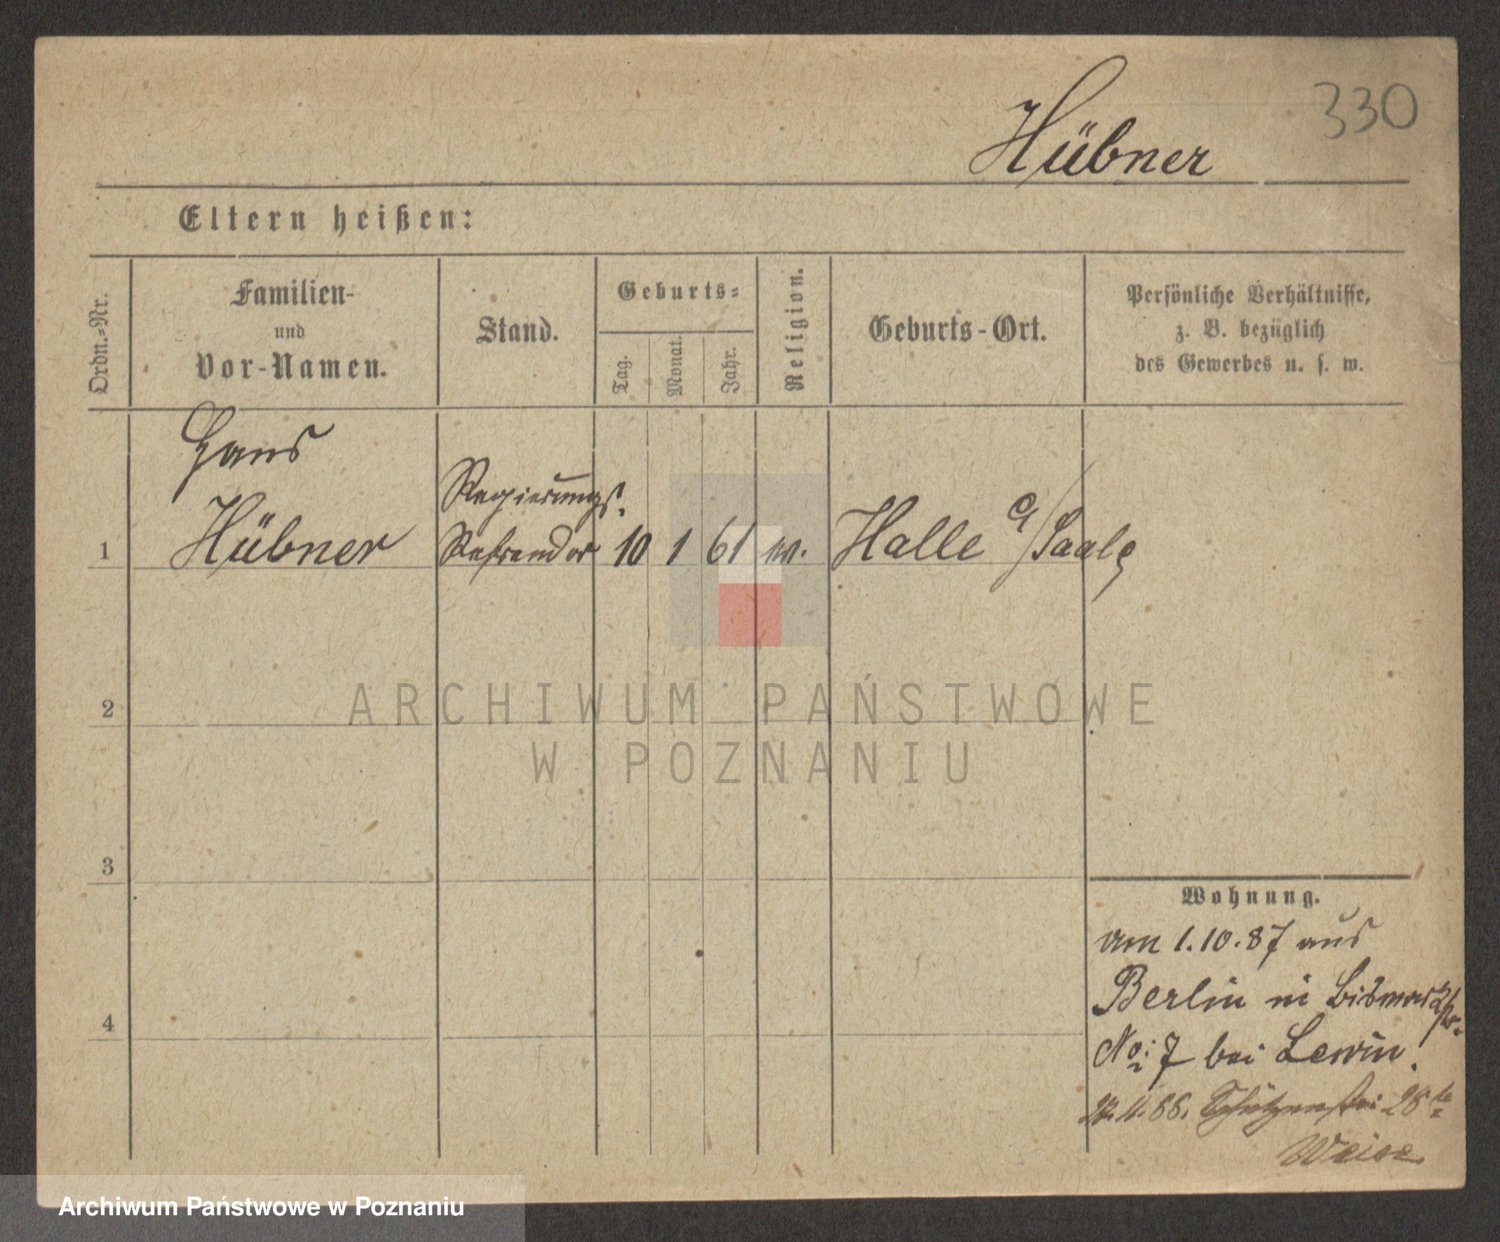 330
Hübner
Eltern heißen:
Ordn.-Nr.
Familien-
und
Vor-Namen.
Stand.
Geburts-
Tag.
Monat.
Jahr.
Religion.
Geburts-Ort.
Persönliche Verhältnisse,
z. B. bezüglich
des Gewerbes u. s. w.
Hans
Regierungs-
1 Hübner Referendar 10 1 61 Halle a/Saale
2
3
4
ARCHIWUM PAŃSTWOWE
W POZNANIU
Wohnung.
am 1.10.87 aus
Berlin in Bismarckstr.
No: 7 bei Lewin.
88. Schützenstr.
Weise
Archiwum Państwowe w Poznaniu